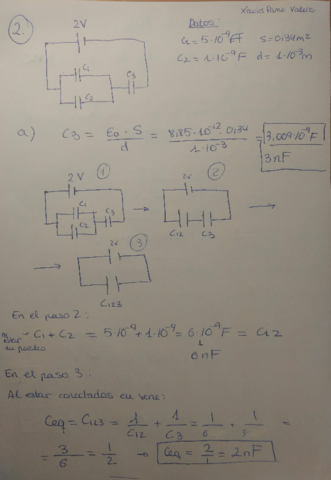 2.
2V
C₁
C₂
C₃
Datos:
C₁ = 5·10⁻⁹ F S = 0,34 m²
C₂ = 1·10⁻⁹ F d = 1·10⁻³ m
a) C₃ = E₀ · S / d = 8,85·10⁻¹² · 0,34 / 1·10⁻³ = 3,009·10⁻⁹ F
3nF
2V ① → 2V ② →
C₁
C₂
C₃
C₁₂ C₃
→ 2V ③
C₁₂₃
En el paso 2:
C₁ + C₂ = 5·10⁻⁹ + 1·10⁻⁹ = 6·10⁻⁹ F = C₁₂
6 nF
En el paso 3.
Al estar conectados en serie:
Ceq = C₁₂₃ = 1/C₁₂ + 1/C₃ = 1/6 + 1/3 =
= 3/6 = 1/2 → Ceq = 2/1 = 2nF